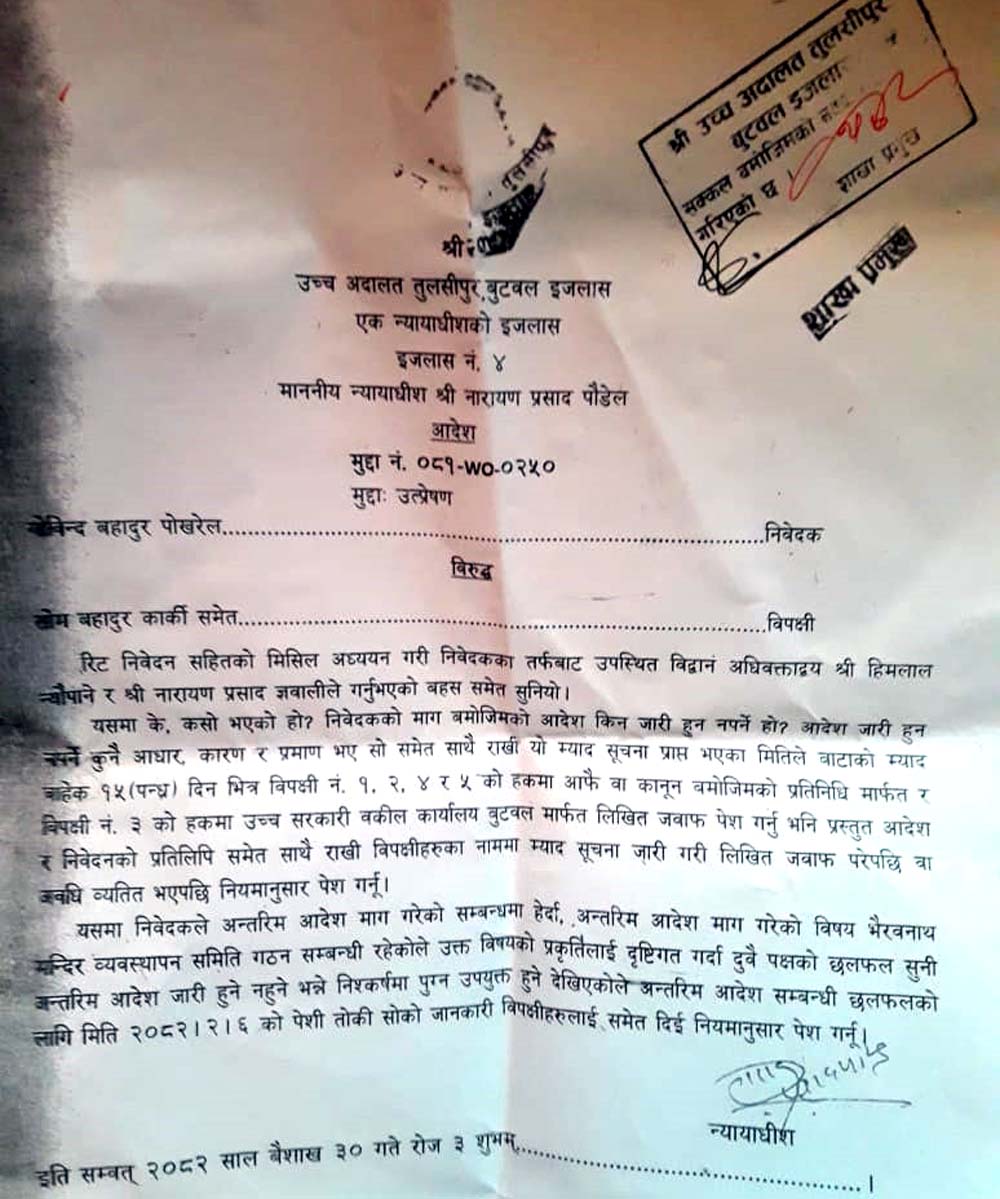 श्री उच्च अदालत तुलसीपुर
बुटवल इजला
सक्कल बमोजिमको
गरिएको छ ।
शाखा प्रमुख
शाखा प्रमुख
तुलसीपुर
श्री
उच्च अदालत तुलसीपुर बुटवल इजलास
एक न्यायाधीशको इजलास
इजलास नं. ४
माननीय न्यायाधीश श्री नारायण प्रसाद पौडेल
आदेश
मुद्दा नं. ०८१-WO-०२५०
मुद्दाः उत्प्रेषण
बहादुर पोखरेल..........निवेदक
विरुद्ध
बहादुर कार्की समेत..........विपक्षी
रिट निवेदन सहितको मिसिल अध्ययन गरी निवेदकका तर्फबाट उपस्थित विद्वान अधिवक्ताद्वय श्री हिमलाल
न्यौपाने र श्री नारायण प्रसाद ज्ञवालीले गर्नुभएको बहस समेत सुनियो।
यसमा के, कसो भएको हो? निवेदकको माग बमोजिमको आदेश किन जारी हुन नपर्ने हो? आदेश जारी हुन
नपर्ने कुनै आधार, कारण र प्रमाण भए सो समेत साथै राखी यो म्याद सूचना प्राप्त भएका मितिले वाटाको म्याद
बाहेक १५(पन्ध्र) दिन भित्र विपक्षी नं. १, २, ४ र ५ को हकमा आफै वा कानून बमोजिमको प्रतिनिधि मार्फत र
विपक्षी नं. ३ को हकमा उच्च सरकारी वकील कार्यालय बुटवल मार्फत लिखित जवाफ पेश गर्नु भनि प्रस्तुत आदेश
र निवेदनको प्रतिलिपि समेत साथै राखी विपक्षीहरुका नाममा म्याद सूचना जारी गरी लिखित जवाफ परेपछि वा
अवधि व्यतित भएपछि नियमानुसार पेश गर्नू।
यसमा निवेदकले अन्तरिम आदेश माग गरेको सम्बन्धमा हेर्दा, अन्तरिम आदेश माग गरेको विषय भैरवनाथ
मन्दिर व्यवस्थापन समिति गठन सम्बन्धी रहेकोले उक्त विषयको प्रकृतिलाई दृष्टिगत गर्दा दुवै पक्षको छलफल सुनी
अन्तरिम आदेश जारी हुने नहुने भन्ने निश्कर्षमा पुग्न उपयुक्त हुने देखिएकोले अन्तरिम आदेश सम्बन्धी छलफलको
लागि मिति २०८२।२।६ को पेशी तोकी सोको जानकारी विपक्षीहरुलाई समेत दिई नियमानुसार पेश गर्नू।
न्यायाधीश
इति सम्वत् २०८२ साल बैशाख ३० गते रोज ३ शुभम्..........।